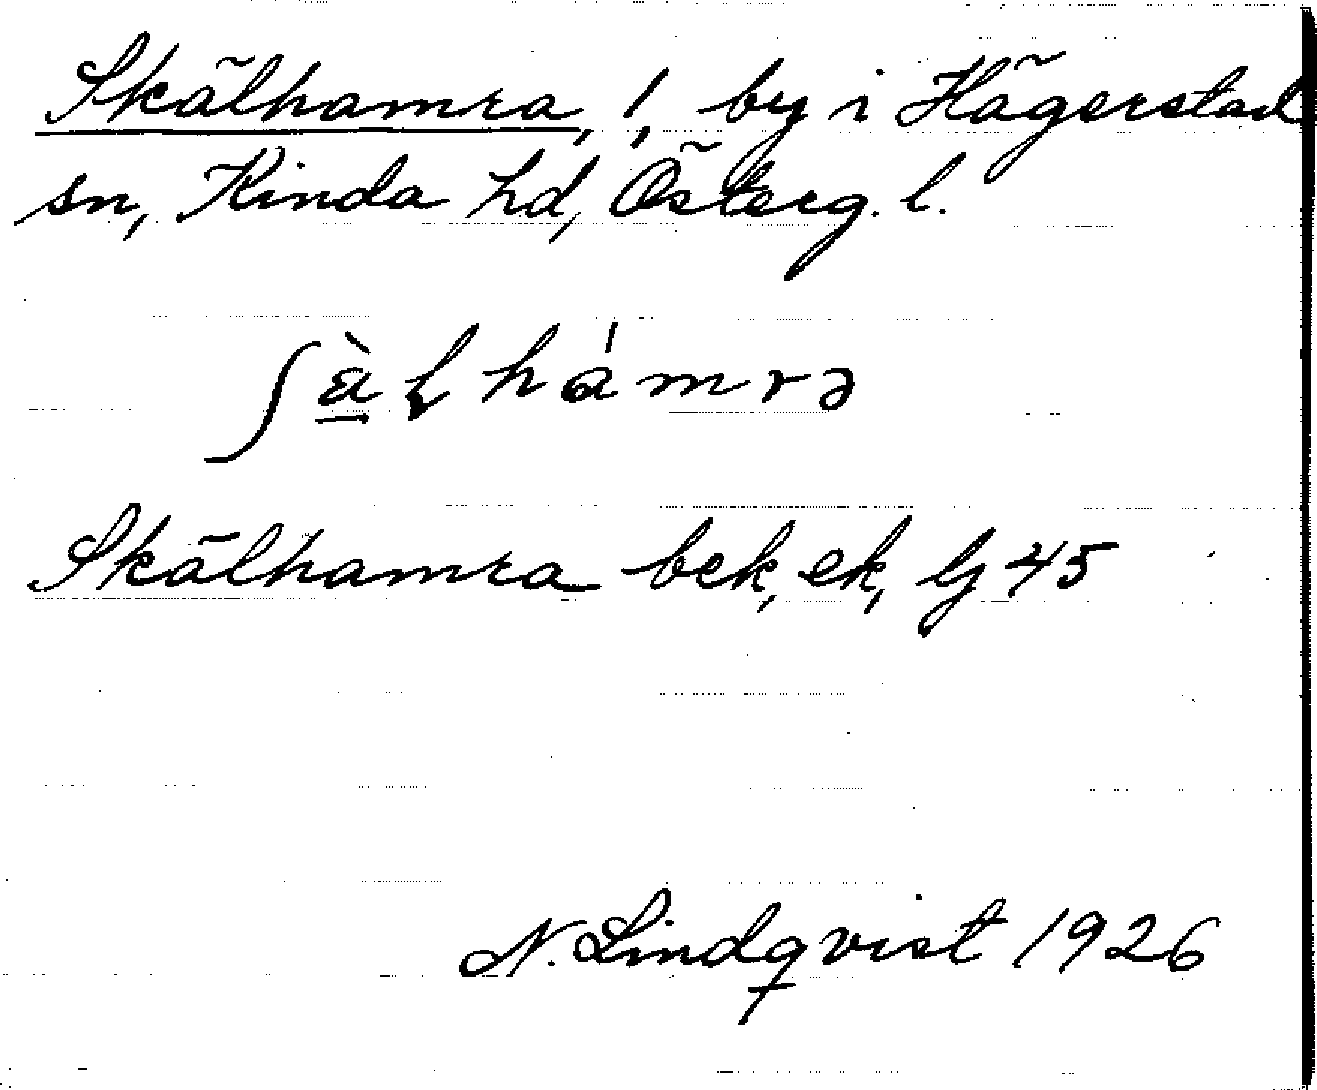 Skälhamra, 1, by i Hägerstad
sn, Kinda hd, Österg. l.
Skälhamra bek, ek, lj 45
N. Lindqvist 1926